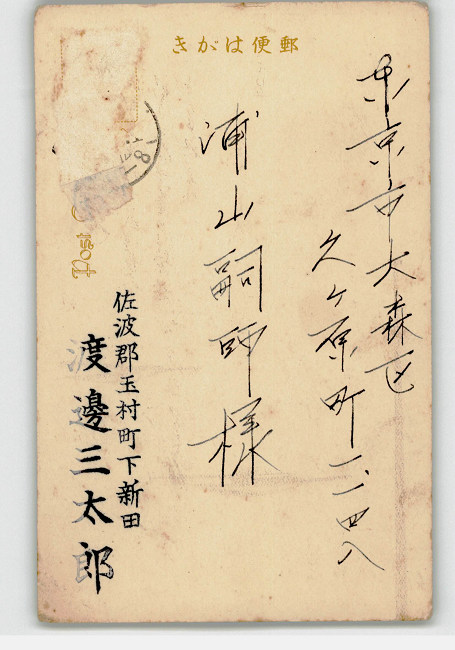 郵便はがき
東京市大森区
久ヶ原町一、一四八
浦山嗣師様
佐波郡玉村町下新田
渡邊三太郎
Post